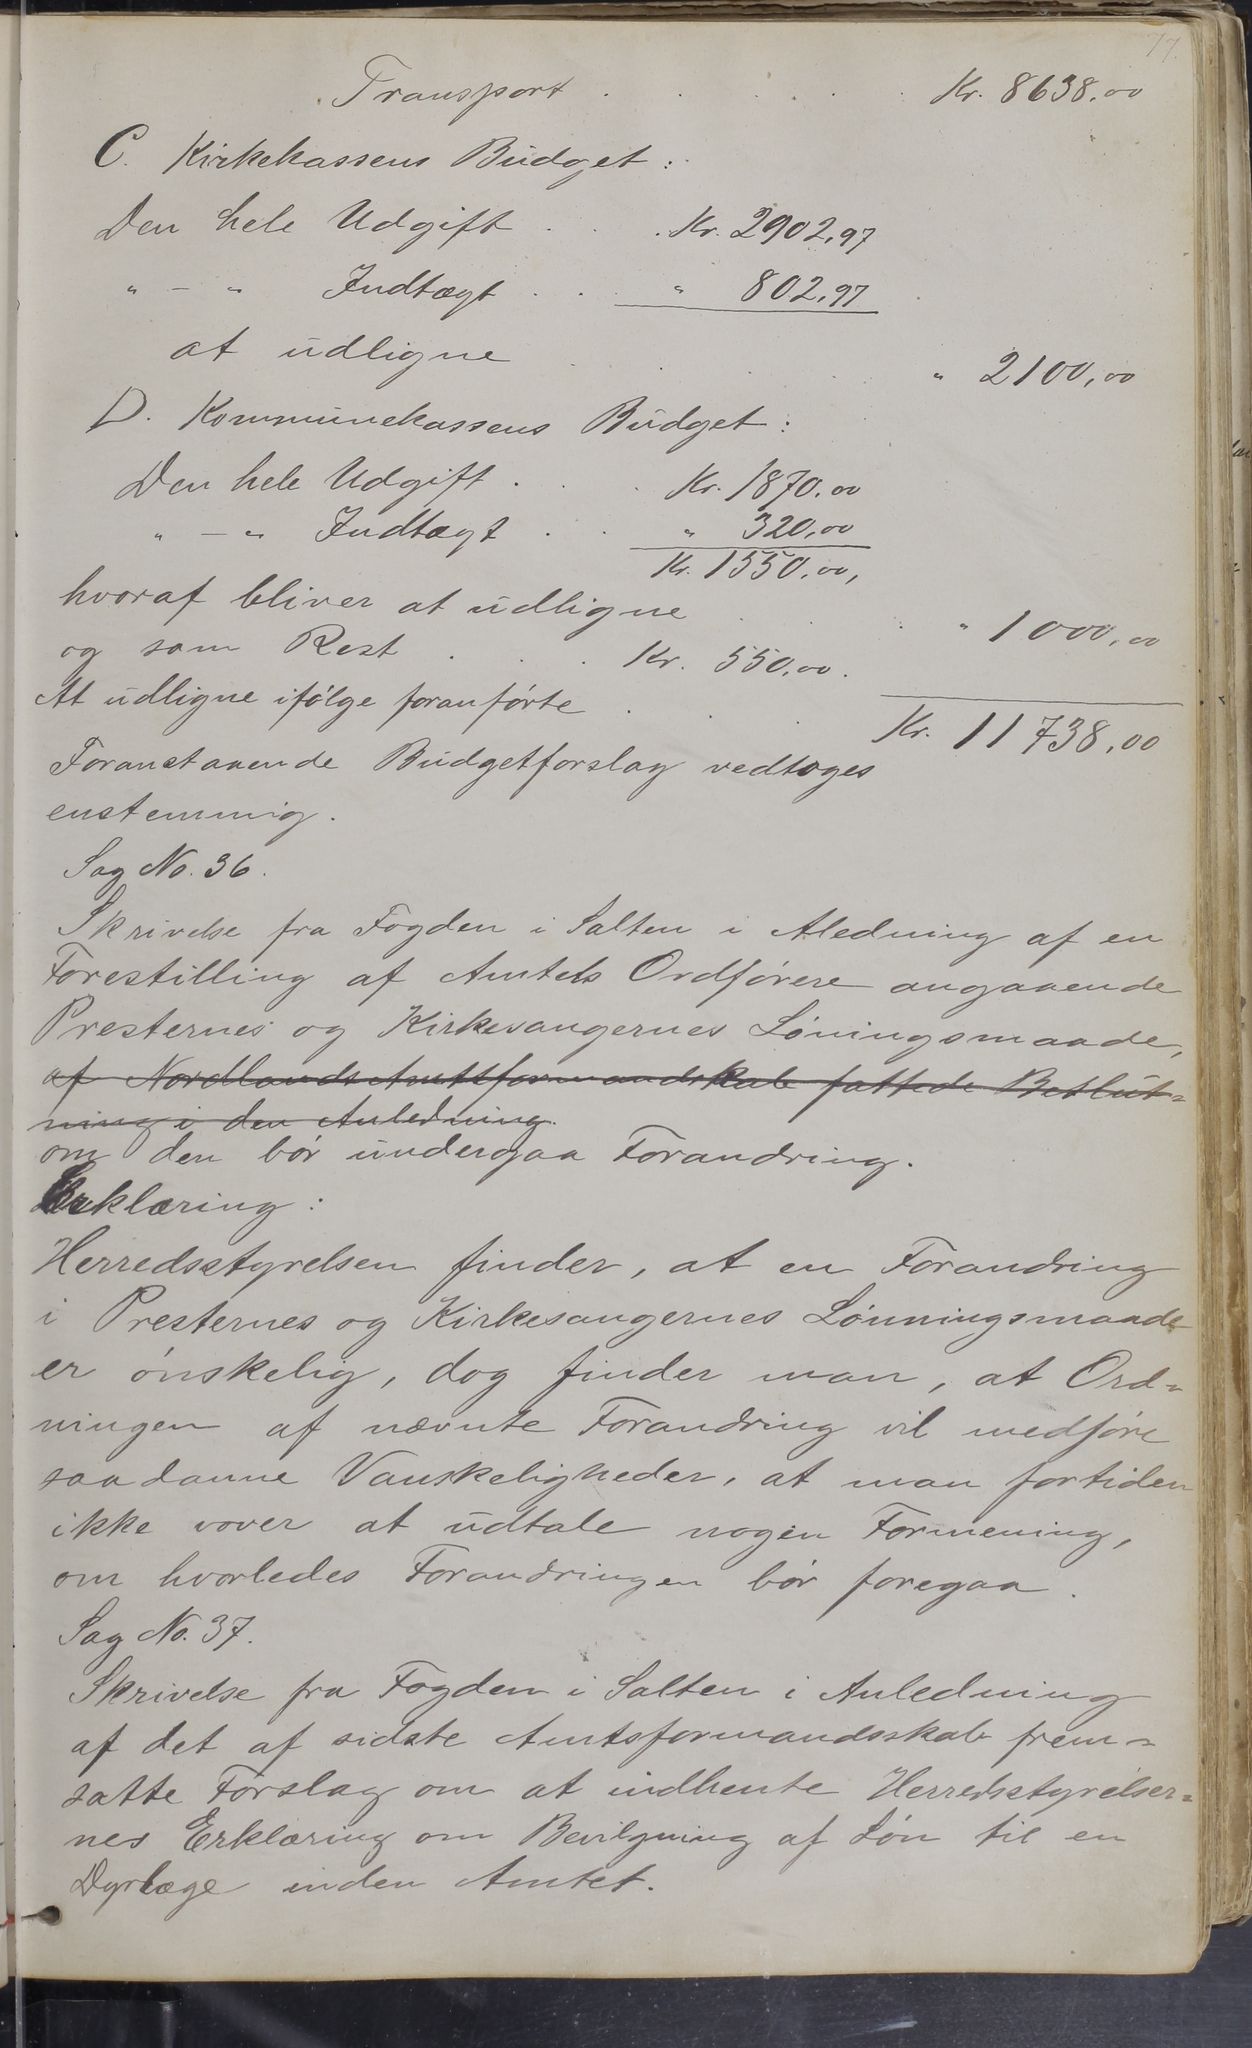 77
Transport . . . . . Kr. 8638.00
C. Kirkekassens Budget:
Den hele Udgift . . . Kr. 2902,97
" - " Indtægt . . . " 802,97
at udligne . . . . . " 2100,00
D. Kommunekassens Budget:
Den hele Udgift . . . Kr. 1870.00
" - " Indtægt . . " 320,00
Kr. 1550.00,
hvoraf bliver at udligne . . . . " 1000,00
og som Rest . . . Kr. 550.00.
At udligne ifølge foranførte . . . Kr. 11738,00
Foranstaaende Budgetforslag vedtoges
enstemmig.
Sag No. 36.
Skrivelse fra Fogden i Salten i Aledning af en
Forestilling af Amtets Ordførere angaaende
Presternes og Kirkesangernes Løningsmaade,
af Nordlands Amtsformandskab fattede Beslut=
ning i den Anledning.
om den bør undergaa Forandring.
Erklæring:
Herredsstyrelsen finder, at en Forandring
i Presternes og Kirkesangernes Lønningsmaade
er ønskelig, dog finder man, at Ord=
ningen af nævnte Forandring vil medføre
saadanne Vanskeligheder, at man fortiden
ikke vover at udtale nogen Formening,
om hvorledes Forandringen bør foregaa.
Sag No. 37.
Skrivelse fra Fogden i Salten i Anledning
af det af sidste Amtsformandsskab frem=
satte Forslag om at indhente Herredsstyrelser=
nes Erklæring om Bevilgning af Løn til en
Dyrlæge inden Amtet.